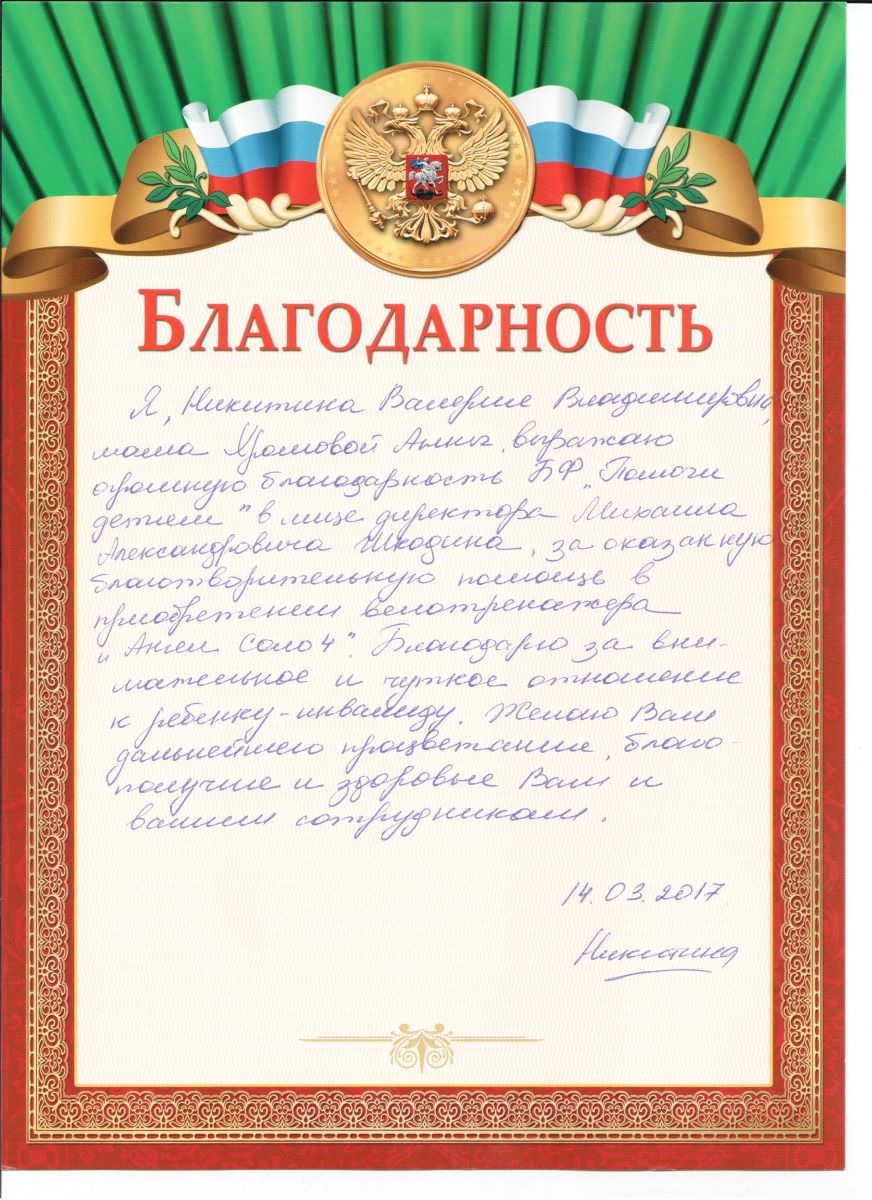 БЛАГОДАРНОСТЬ
Я, Никитина Валерия Владимировна,
мама Хромовой Анны, выражаю
огромную благодарность БФ „Помоги
детям" в лице директора Михаила
Александровича Шкодина, за оказанную
благотворительную помощь в
приобретении велотренажера
„Ангел Соло 4". Благодарю за вни-
мательное и чуткое отношение
к ребенку-инвалиду. Желаю Вам
дальнейшего процветания, благо-
получия и здоровья Вам и
вашим сотрудникам.
14.03.2017
Никитина